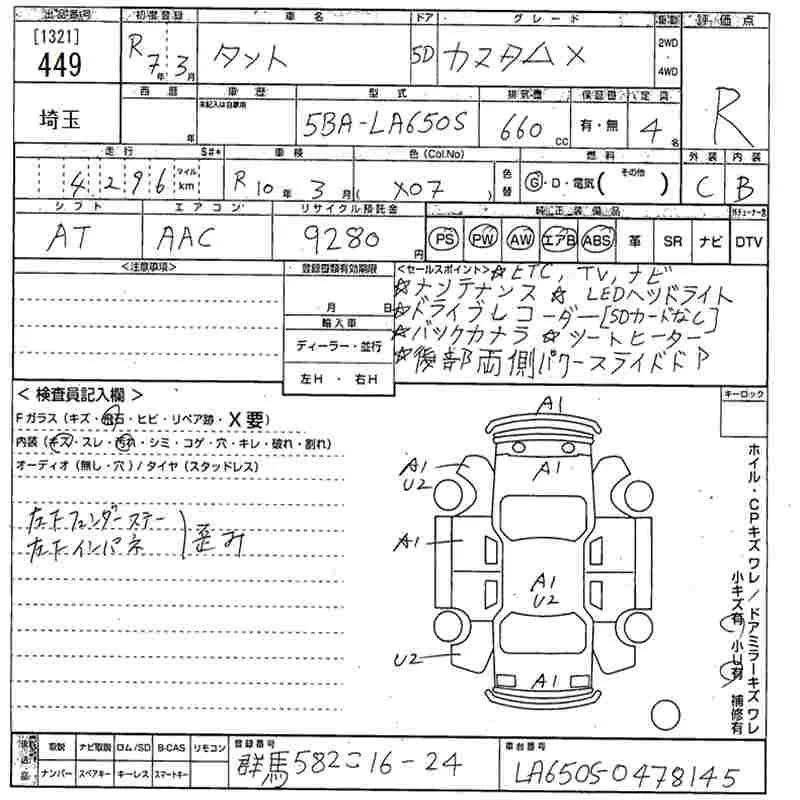 出品番号 初度登録 車名 ドア グレード 駆動 評価点
[1321]
449
R 7年 3月 タント 5D カスタムX 2WD・4WD R
埼玉
西暦 年 車歴 未記入は自家用 型式 排気量 保証書 定員
5BA-LA650S 660cc 有・無 4名
走行 S#* 車検 色(Col.No) 燃料 外装 内装
4 2 9 6 マイル km R 10年 3月 ( X07 ) 色替 G・D・電気 (その他) C B
シフト エアコン リサイクル預託金 純正装備品
AT AAC 9280円 PS PW AW エアB ABS 革 SR ナビ DTV
<注意事項> 登録書類有効期限 <セールスポイント>☆ETC,TV,ナビ
月 日
☆メンテナンス ☆ LEDヘッドライト
☆ドライブレコーダー[SDカードなし]
輸入車
☆バックカメラ ☆シートヒーター
ディーラー・並行
☆後部両側パワースライドドア
左H・右H
<検査員記入欄> キーロック
Fガラス(キズ・飛石・ヒビ・リペア跡・X要)
内装(キズ・スレ・汚れ・シミ・コゲ・穴・キレ・破れ・割れ)
オーディオ(無し・穴)/タイヤ(スタッドレス)
左右フェンダーステー
左右インパネ
歪み
A1
A1
A1
U2
A1
A1
U2
U2
A1
ホイル・CPキズ ワレ/ドアミラーキズ ワレ
小キズ有 小U有 補修有
後送品 取説 ナビ取説 ロム/SD B-CAS リモコン 登録番号 車台番号
ナンバー スペアキー キーレス スマートキー 群馬582こ16-24 LA650S-0478145